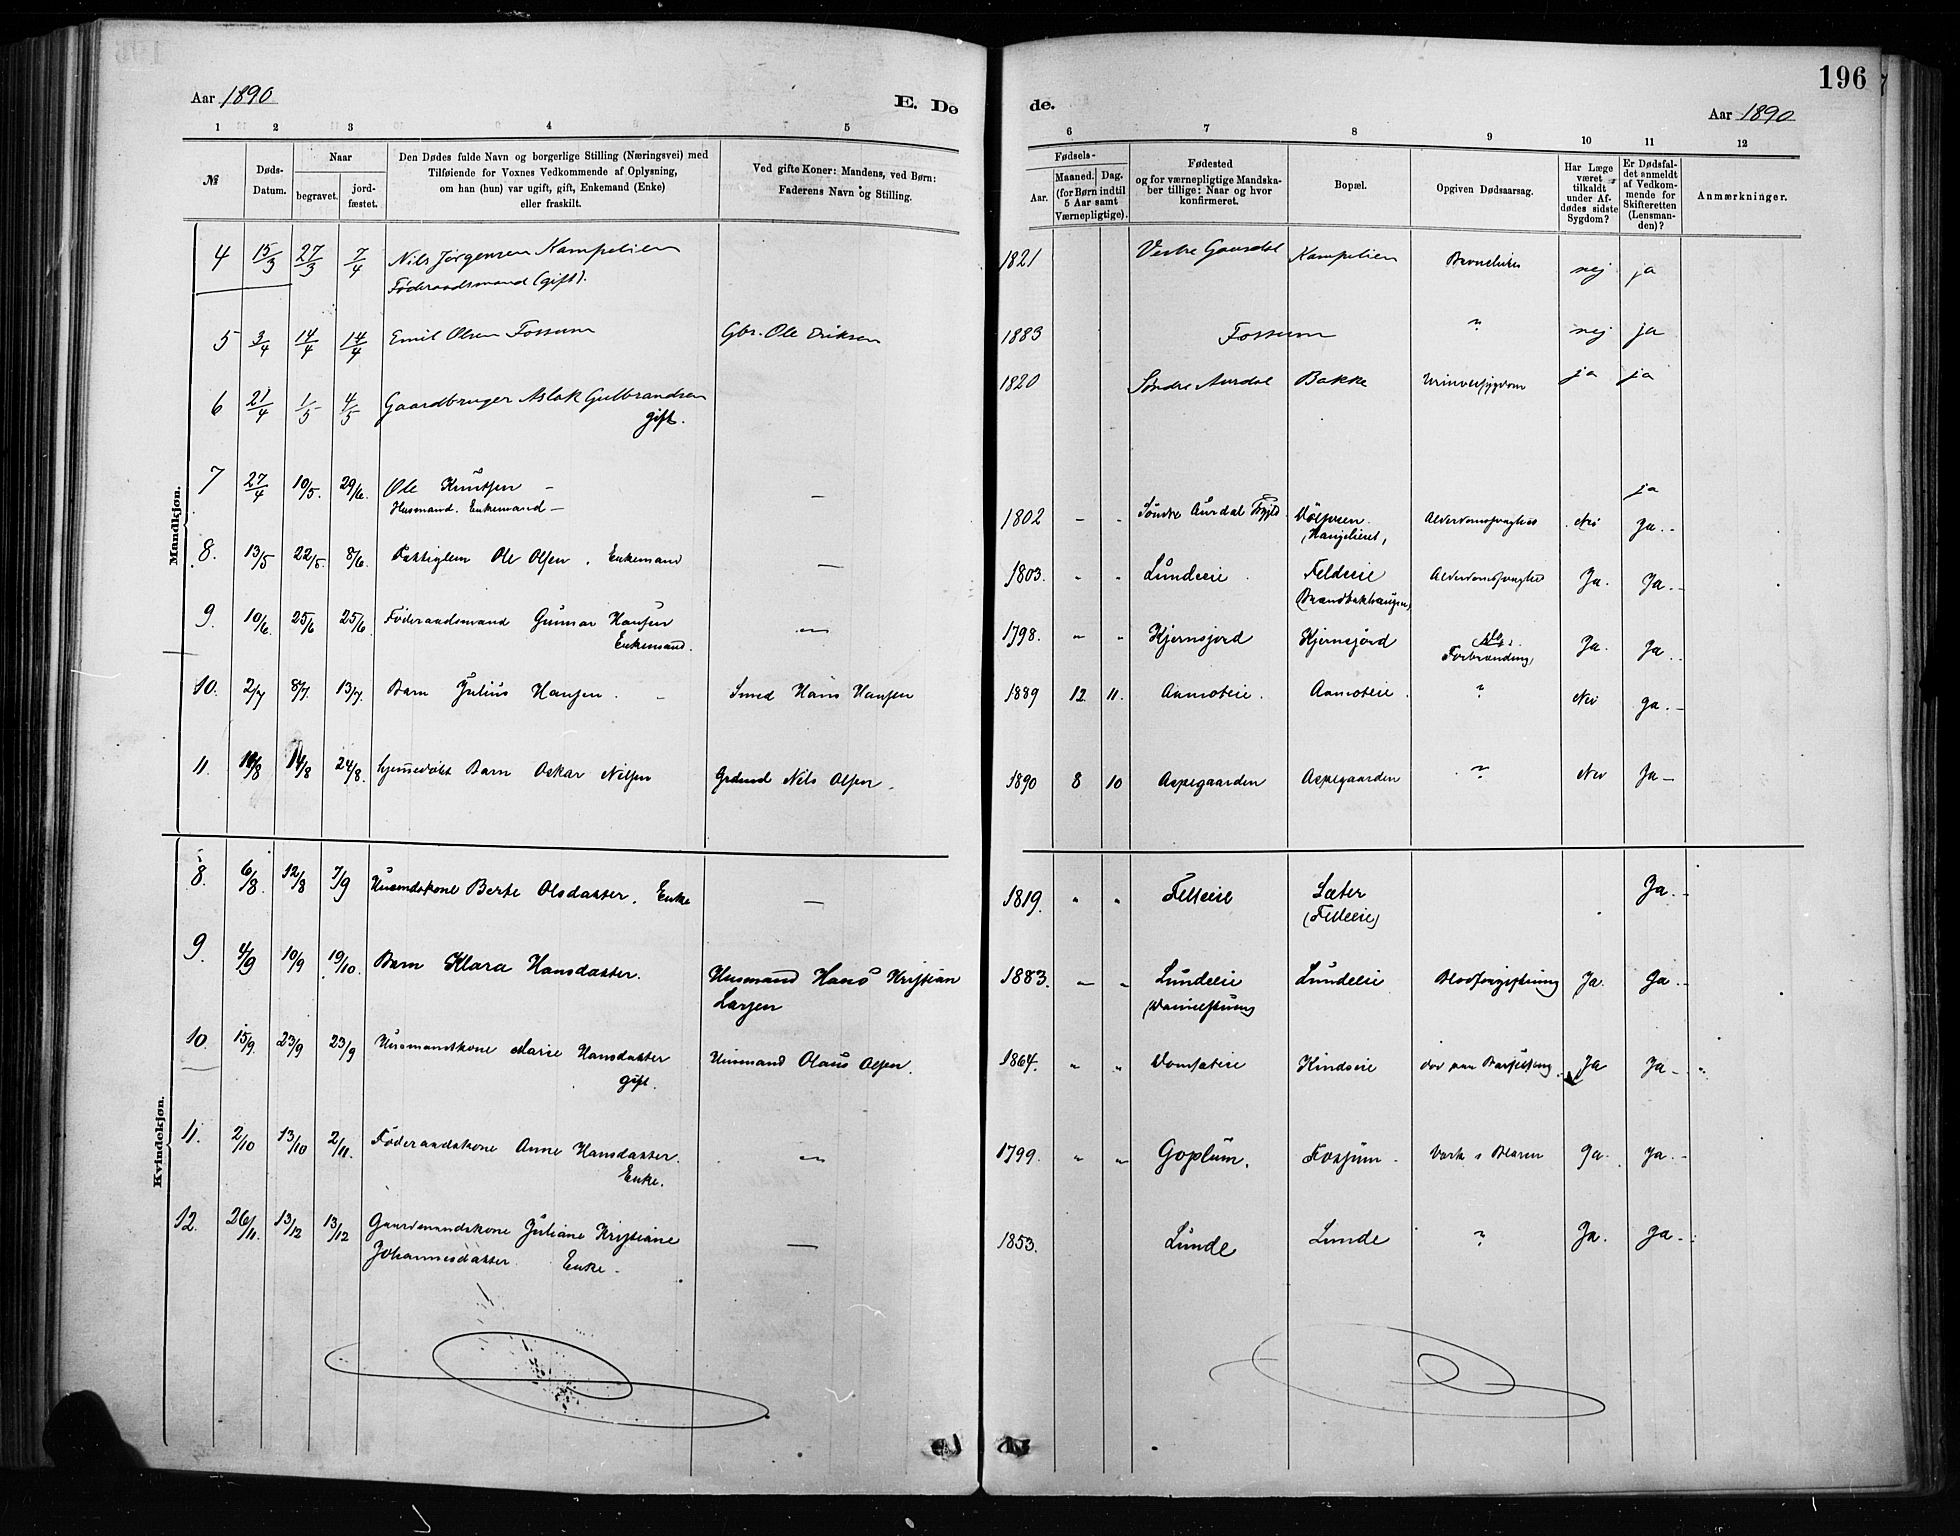 196
Aar 1890
E. Dø
de.
Aar 1890
1 2 3 4 5 6 7 8 9 10 11 12
№
Døds-
Datum.
Naar
begravet.
jord-
fæstet.
Den Dødes fulde Navn og borgerlige Stilling (Næringsvei) med
Tilføiende for Voxnes Vedkommende af Oplysning,
om han (hun) var ugift, gift, Enkemand (Enke)
eller fraskilt.
Ved gifte Koner: Mandens, ved Børn:
Faderens Navn og Stilling.
Fødsels-
Aar.
Maaned. Dag.
(for Børn indtil
5 Aar samt
Værnepligtige).
Fødested
og for værnepligtige Mandska-
ber tillige: Naar og hvor
konfirmeret.
Bopæl.
Opgiven Dødsaarsag.
Har Læge
været
tilkaldt
under Af-
dødes sidste
Sygdom?
Er Dødsfal-
det anmeldt
af Vedkom-
mende for
Skifteretten
(Lensman-
den)?
Anmærkninger.
Mandkjøn.
4 15/3 27/3 7/4 Nils Jørgensen Kampelien 1821 Vestre Gausdal Kampelien nej ja
Føderaadsmand (gift).
5 3/4 14/4 14/4 Emil Olsen Fossum Gbr. Ole Eriksen 1883 Fossum " nej ja
6 21/4 1/5 4/5 Gaardbruger Aslak Gulbrandsen 1820 Søndre Aurdal Bakke ja ja
gift.
7 27/4 10/5. 29/6. Ole Knutsen – – ja
Husmand. Enkemand – 1802 – " Søndre Aurdal Nei Ja. –
8. 13/5 22/5. 8/6. Fattiglem Ole Olsen. Enkemand – 1803. " " Lundeeie. Feldeie Alderdomssvaghed Ja. Ja. –
9. 10/6. 25/6 25/6 Føderaadsmand Gunnar Hansen 1798. " " Kjernsjord Kjernsjord Forbrænding Ja. Ja. –
Enkemand.
10. 2/7 8/7. 13/7. Barn Julius Hansen. – Smed Hans Hansen 1889 12. 11. Aamoteie. Aamoteie. ? Nei Ja. –
11. 10/8 14/8 24/8. hjemmedøbt Barn Oskar Nilsen Grdmd Nils Olsen. 1890 8 10 Aspegaarden Aspegaarden ? Nei Ja –
Kvindekjøn.
8. 6/8. 12/8 7/9 Husmdskone Berte Olsdatter. Enke – 1819. " " Felteie Sæter Ja. –
(Felteie)
9. 4/9 10/9 19/10. Barn Klara Hansdatter. Husmand Hans Kristian 1883. – " Lundeeie Lundeeie Blodforgiftning Ja. Ja. –
Larsen
10. 15/9. 23/9 23/9 Husmandskone Marie Hansdatter Husmand Olaus Olsen. 1864. " " Kindseie Død paa Barselseng. Ja Ja –
gift.
11. 2/10 13/10 2/11. Føderaadskone Anne Hansdatter. 1799. " " Goplum. Fossum – Værk i Blæren Ja. Ja. –
Enke.
12. 26/11. 13/12 13/12 Gaardmandskone Juliane Kristiane – 1853. Lunde Lunde ? Ja. Ja. –
Johannesdatter. Enke –